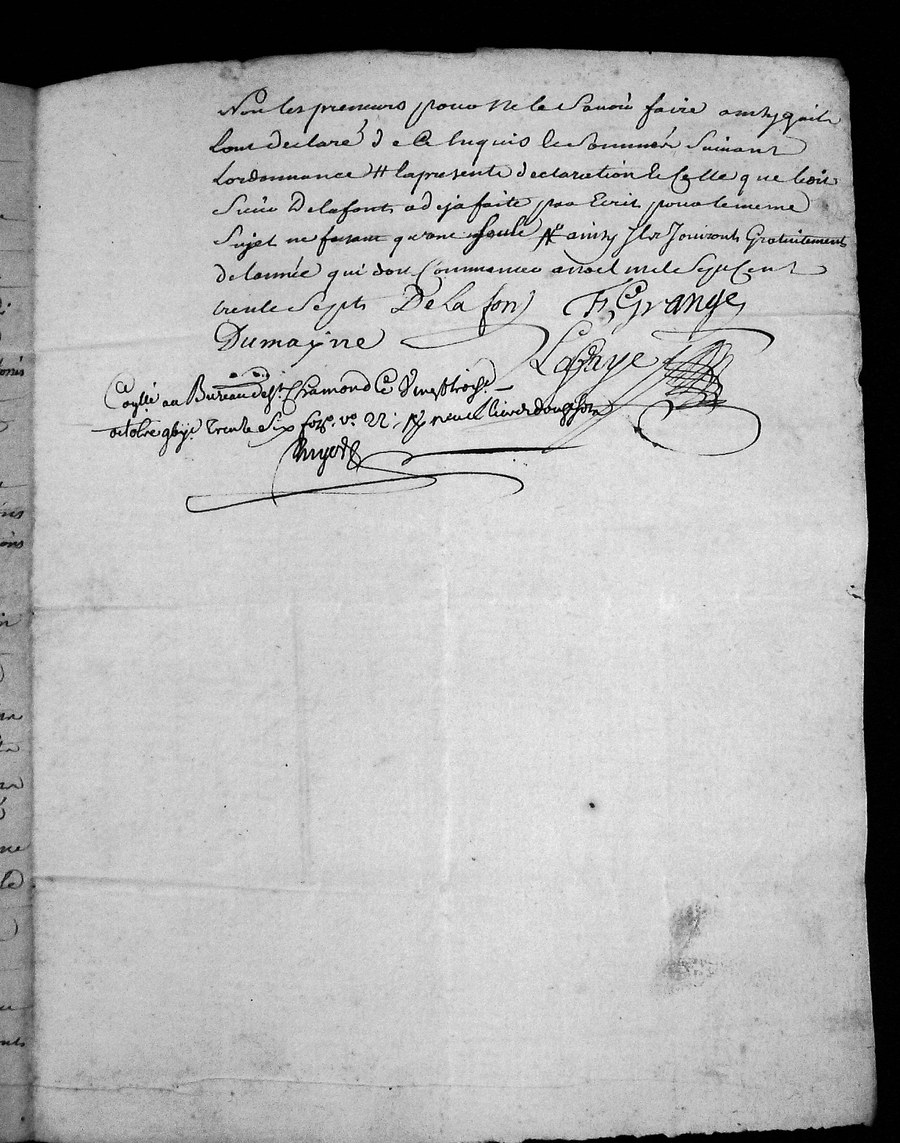 Non les preneurs pour ne le Savoir faire ainsy quils
lont declaré de Ce Enquis le Sommés Suivant
Lordonnance # lapresente declaration le Celle que ledit
Sieur Delafont a deja faite par Ecrit pour lememe
Sujet ne faisant qu'une seule # ainsy Ils Jouiront Gratuitement
de lannée qui doit Commencer a noel mil Sept Cent
trente Sept DeLafon F Grange
Dumayne
Lafaye
au Bureau de St Chamond Ce Vingt trois
octobre trente Six fo vo 22